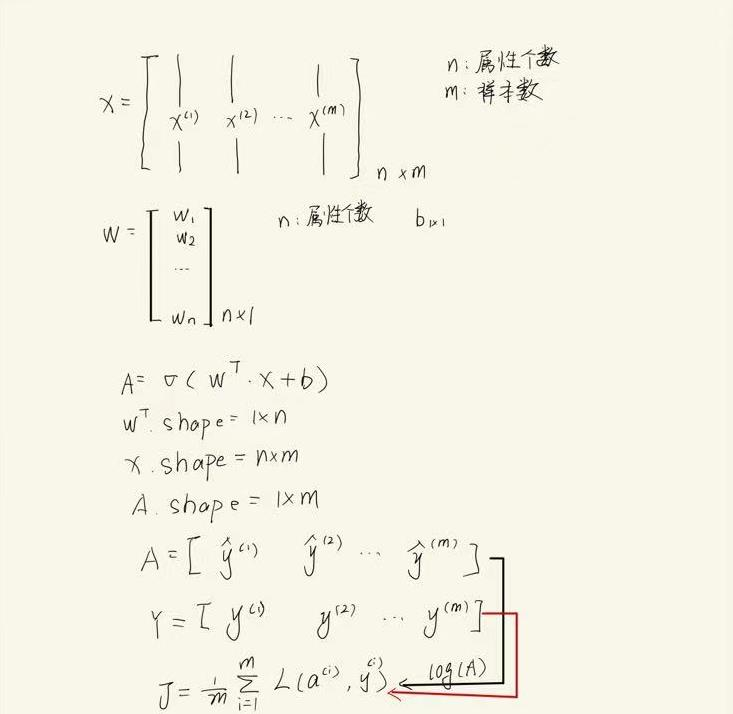 X = [ x^(1) x^(2) ... x^(m) ] n×m
n: 属性个数
m: 样本数
W = [ w₁ w₂ ... wₙ ] n×1
n: 属性个数 b₁ₓ₁
A = σ( w^T · x + b )
w^T. shape = 1×n
x. shape = n×m
A. shape = 1×m
A = [ ŷ^(1) ŷ^(2) ... ŷ^(m) ]
Y = [ y^(1) y^(2) ... y^(m) ]
J = 1/m ∑_{i=1}^{m} L(a^(i), y^(i)) log(A)